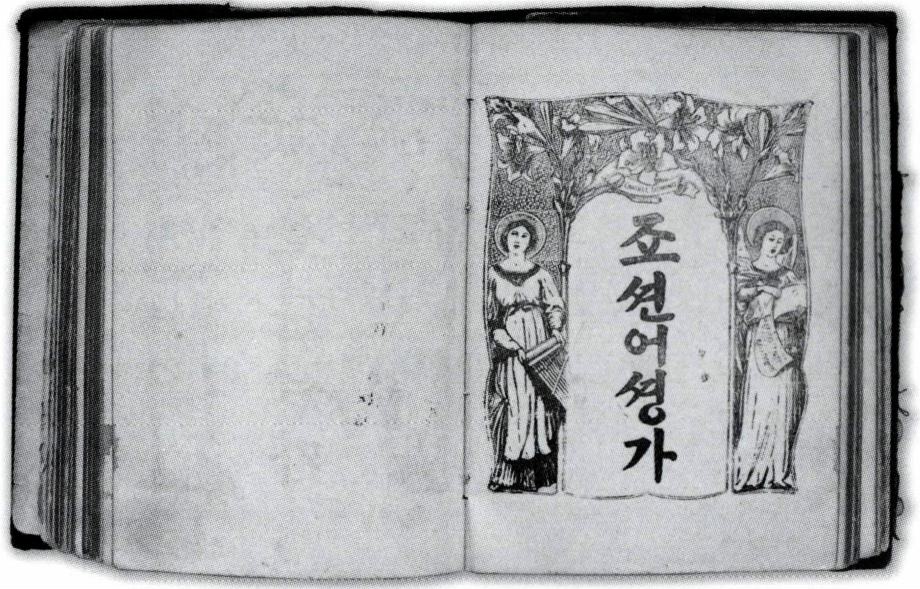 죠션어셩가